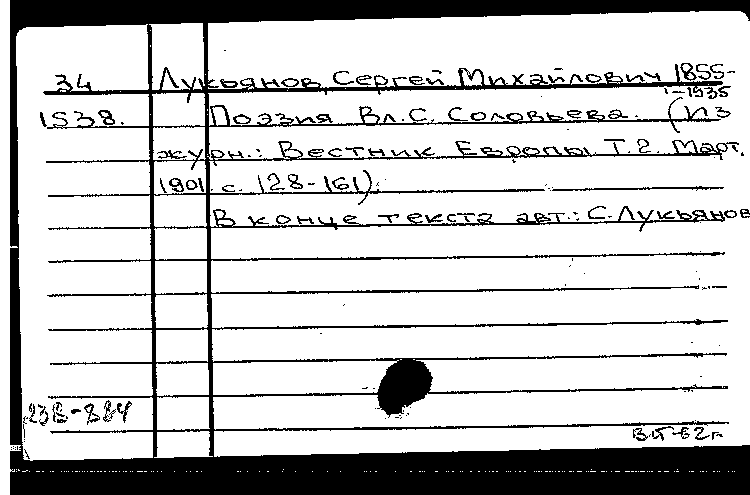 34 Лукьянов, Сергей Михайлович 1855-
-1935
1538. Поэзия Вл.С. Соловьева. (Из
журн.: Вестник Европы Т.2. Март.
1901. с. 128-161).
В конце текста авт.: С.Лукьянов
238-884